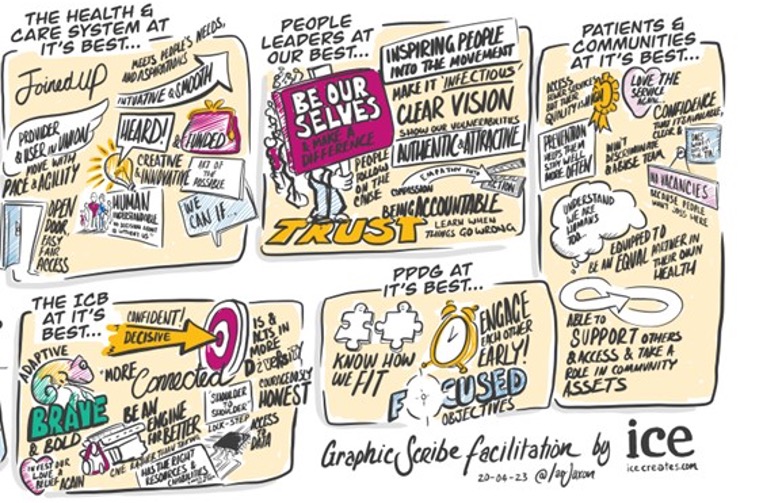 THE HEALTH &
CARE SYSTEM AT
IT'S BEST...
Joined UP
MEETS PEOPLE'S NEEDS,
AND ASPIRATIONS
INTUATIVE & SMOOTH
PROVIDER
& USER IN UNION
HEARD!
& FUNDED
MOVE WITH
PACE & AGILITY
CREATIVE
& INNOVATIVE
ART OF
THE
POSSIBLE
HUMAN
WE
CAN IF...
OPEN
DOOR
EASY
FAIR
ACCESS
PEOPLE
LEADERS AT
OUR BEST...
INSPIRING PEOPLE
INTO THE MOVEMENT
MAKE IT 'INFECTIOUS'
CLEAR VISION
SHOW OUR VULNERABILITIES
AUTHENTIC & ATTRACTIVE
BE OUR
SELVES
& MAKE A
DIFFERENCE
PEOPLE
FOLLOW
ON THE
CAUSE
EMPATHY INTO
ACTION
COMPASSION
BEING ACCOUNTABLE
LEARN WHEN
THINGS GO WRONG
TRUST
PATIENTS &
COMMUNITIES
AT IT'S BEST...
ACCESS
BUT THEIR
QUALITY IS HIGH
LOVE THE
SERVICE
AGAIN...
CONFIDENCE
THAT IT'S AVAILABLE,
CLEAR &
PREVENTION
KEEPS THEM
STAY WELL
MORE OFTEN
WON'T
DISCRIMINATE
& ABUSE TEAM
NO VACANCIES
BECAUSE PEOPLE
WANT JOBS HERE
UNDERSTAND
WE ARE
HUMANS
TOO...
EQUIPPED TO
BE AN EQUAL PARTNER IN
THEIR OWN
HEALTH
ABLE TO
SUPPORT OTHERS
& ACCESS & TAKE A
ROLE IN COMMUNITY
ASSETS
THE ICB
AT IT'S
BEST...
CONFIDENT!
DECISIVE
IS &
ACTS IN
MORE
DIVERSITY
ADAPTIVE
"MORE Connected
COURAGEOUSLY
HONEST
BRAVE
& BOLD
BE AN
ENGINE
FAR BETTER
SHOULDER
TO
SHOULDER
LOCK-STEP
ACCESS
TO
DATA
INVEST OUR
LOVE &
BELIEF AGAIN
HAS THE RIGHT
RESOURCES &
CAPABILITIES
PPDG AT
IT'S BEST...
KNOW HOW
WE FIT
ENGAGE
EACH OTHER
EARLY!
FOCUSED
OBJECTIVES
Graphic Scribe facilitation by ice
icecreates.com
20-04-23